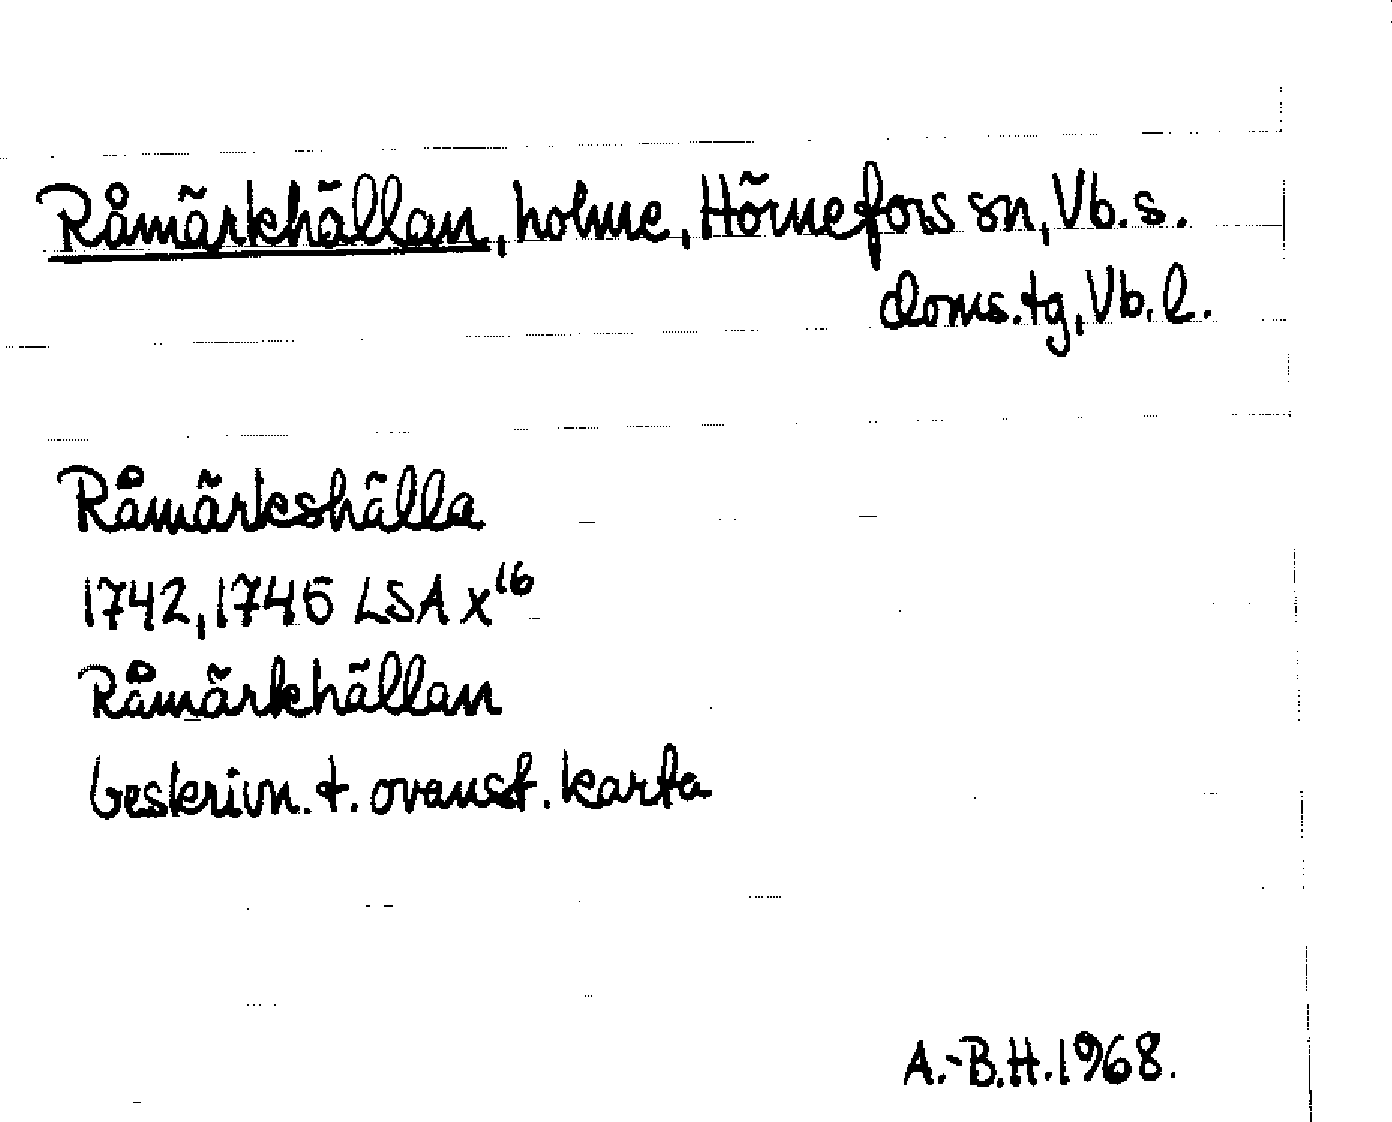 Råmärkhällan, holme, Hörnefors sn, Vb. s.
doms. tg, Vb. l.
Råmärkshälla
1742, 1746 LSA X¹⁶
Råmärkhällan
beskrivn. t. ovanst. karta
A.-B.H. 1968.